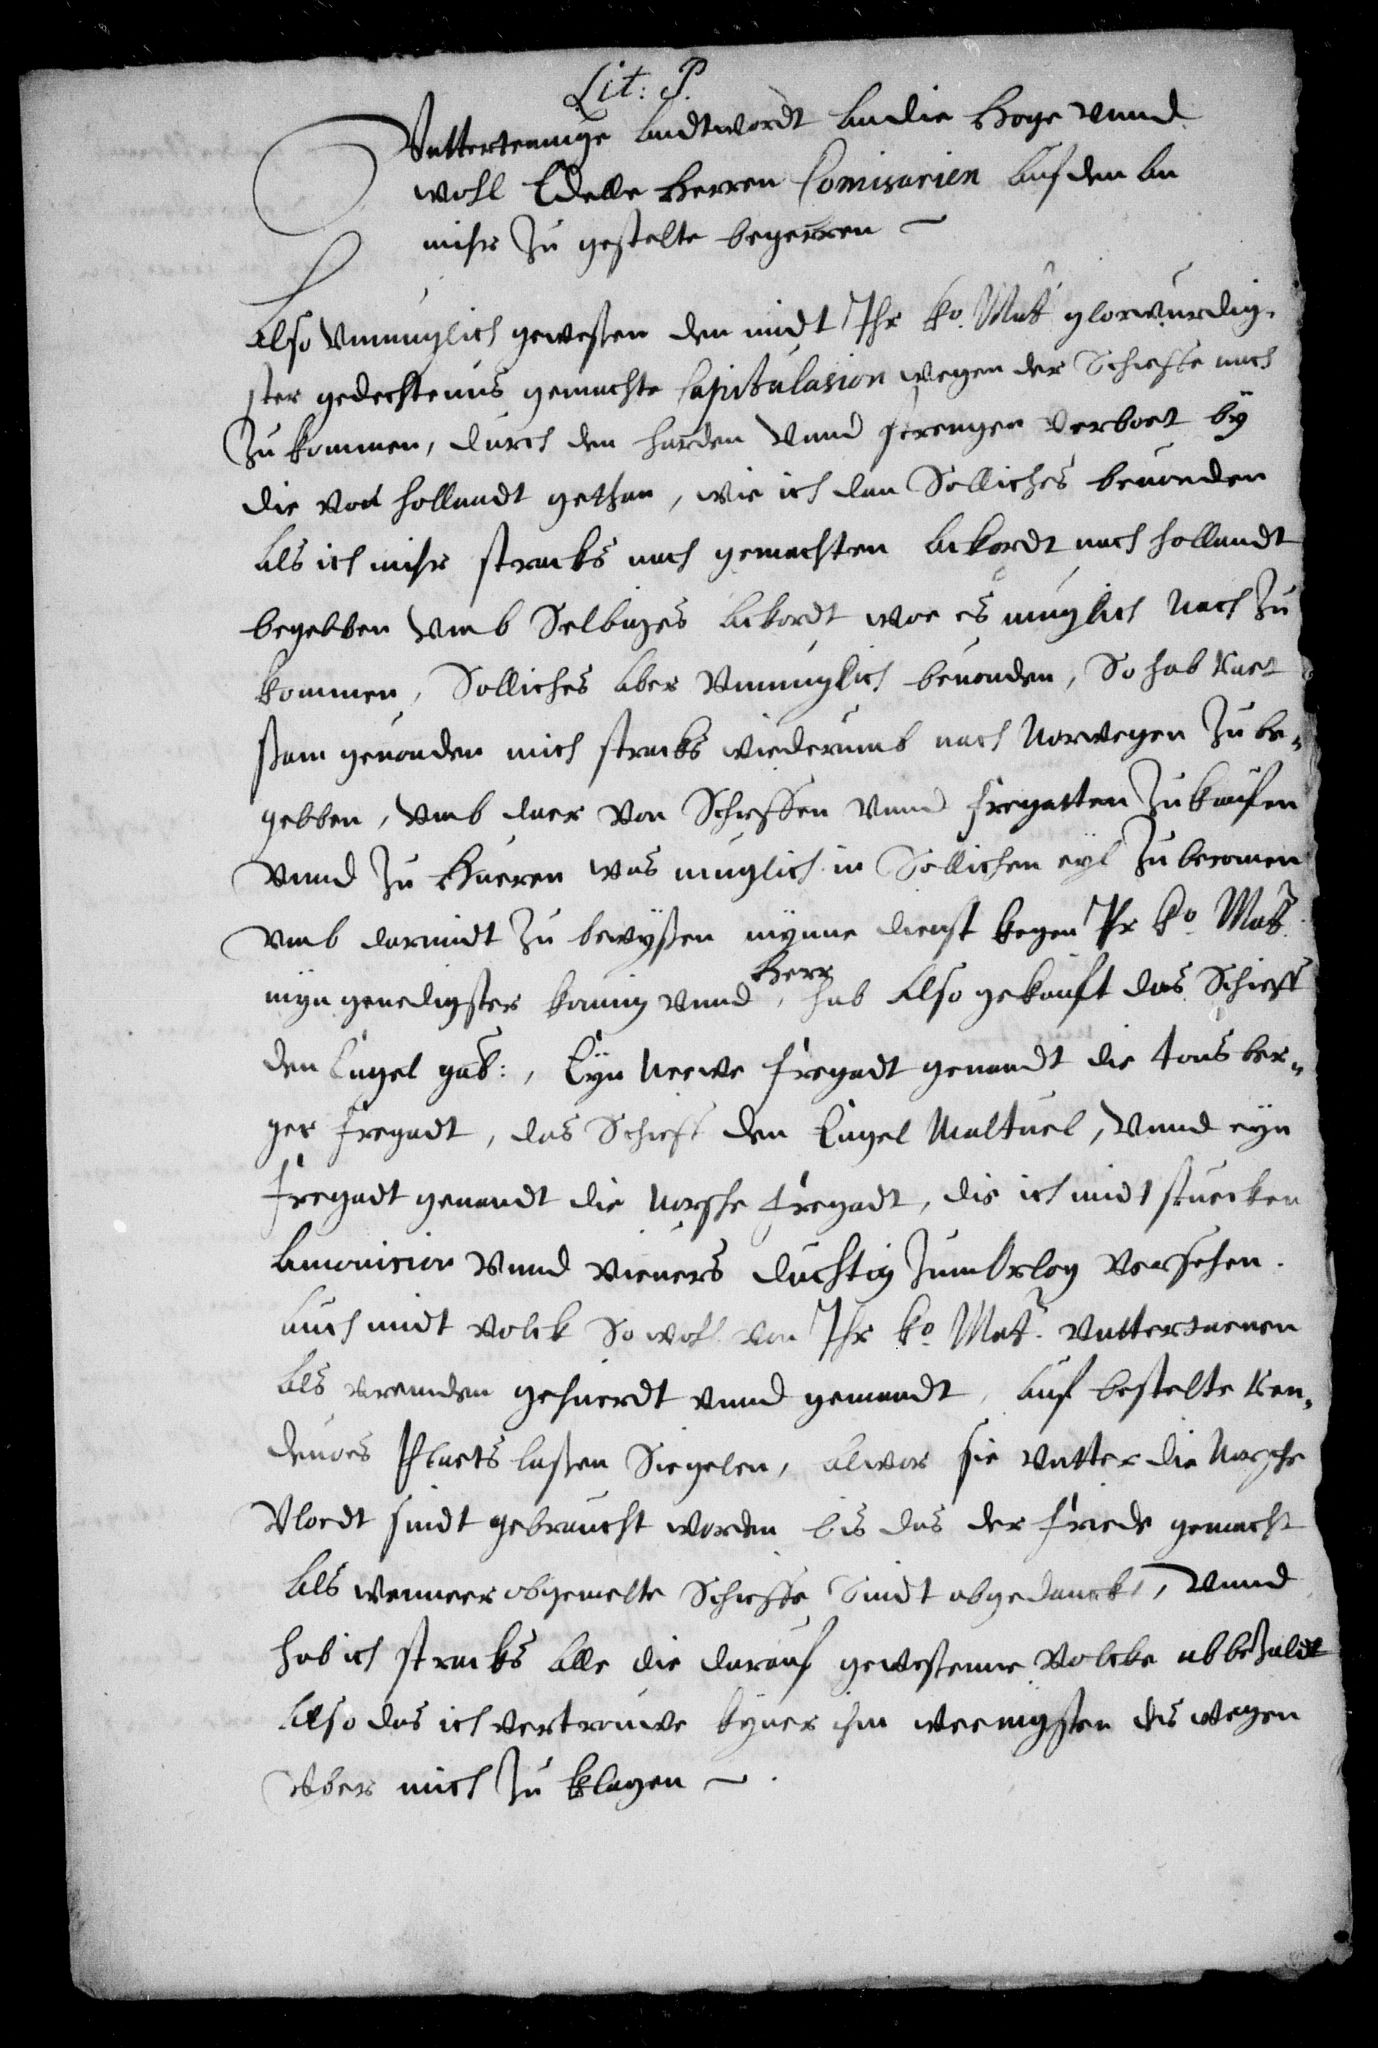 Lit: P.
Vnttertennige Andtwordt An die Hoge vnnd
woll Edelle Herren Comisarien Auf den An
mihr Zu gestelte begerren ~
Also Vnmuglich geweßen den midt Ihr ko. Matt glorwurdig-
ster gedechtenus gemachte Capitulasion wegen der Schieffe nach
Zu kommen, durch den harden Vnnd strengen verboet by
die von Hollandt gethan, wie ich dan Solliches beuonden
Als ich mihr stracks nach gemachten Ackordt nach Hollandt
begebben Vmb Selbiges Ackordt woe es muglich Nach Zu
kommen, Solliches Aber Vnmuglich beuonden, So hab Raet
sam geuonden mich stracks wiederumb nach Norwegen Zu be„
gebben, Vmb daer von Schieffen vnnd fregatten Zu kaufen
Vnnd Zu Hueren was muglich in Sollichen eyl Zu becomen
vmb darmidt Zu bewyßen mynne dienst kegen Ihr ko Matt.
myn genedigster koning vnnd Herr, hab Also gekauft das Schieff
den Engel gab:, Eyn Neewe fregadt genandt die tonsber„
ger fregadt, das Schieff den Engel Maltuel, Vnnd eyn
fregadt genandt die Norsche fregadt, die ich midt stuecken
Amonision Vnnd vieuers duchtig Zum Orlog versehen.
Auch midt volck So woll von Ihr ko Matt. vnttertaenen
Als vremden gehuerdt vnnd gemandt, Auf bestelte Ren„
deuoes Plaets laßen Siegelen, Alwor sie vntter die Norsche
Vloedt sindt gebraucht worden bis das der friede gemacht
Als wanneer obgemelte Schieffe Sindt abgedanckt, Vnnd
hab ich stracks Alle die darauf geweßenne Volcke abbezaldt
Also das ich vertrouwe kyner ihm weenigsten des wegen
Vber mich Zu klagen ~.